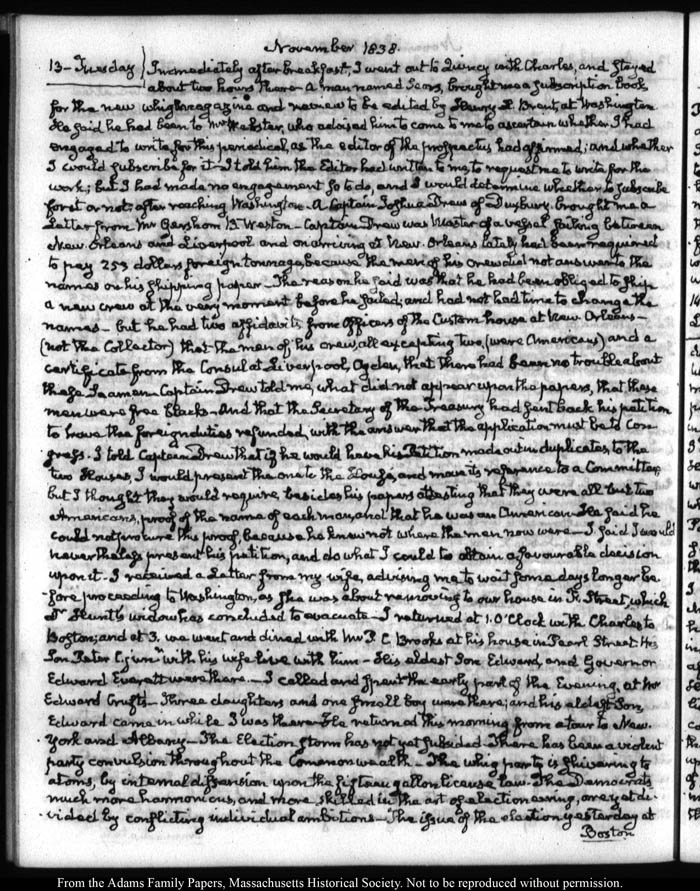 November 1838.
13 – Tuesday } Immediately after breakfast, I went out to Quincy with Charles, and stayed
about two hours there – A man named Sears, brought me a subscription book
for the new whig magazine and review to be edited by at Washington
He said he had been to Mr Webster, who advised him to come to me to ascertain whether I had
engaged to write for this periodical, as the editor of the prospectus had affirmed; and whether
I would subscribe for it – I told him the Editor had written to me, to request me to write for the
work; but I had made no engagement so to do, and I would determine whether to subscribe
for it or not, after reaching Washington – A Captain Joshua Drew of Duxbury, brought me a
Letter from Mr Gershom B. Weston – Captain Drew was Master of a vessel sailing between
New Orleans and Liverpool and on arriving at New Orleans lately had been required
to pay 253 dollars foreign tonnage, because the men of his crew did not answer to the
names on his shipping paper – The reason he said was that he had been obliged to ship
a new crew at the very moment before he sailed; and had not had time to change the
names – but he had two affidavits from Officers of the Custom house at New Orleans –
(not the Collector) that the men of his crew, all excepting two, (were Americans) and a
certificate from the Consul at Liverpool, Ogden, that there had been no trouble about
these Seamen – Captain Drew told me, what did not appear upon the papers, that these
men were free blacks – And that the Secretary of the Treasury had sent back his petition
to have the foreign duties refunded, with the answer that the application must be to Con-
gress. I told Captain Drew that if he would have his Petition made out in duplicates, to the
two Houses, I would present the one to the House, and move its reference to a Committee;
but I thought they would require, besides his papers attesting that they were all but two
Americans, proof of the name of each man, and that he was an American – He said he
could not procure this proof, because he knew not where the men now were – I said I would
nevertheless present his petition, and do what I could to obtain a favourable decision
upon it – I received a Letter from my wife, advising me to wait some days longer be-
fore proceeding to Washington, as she was about removing to our house in F. Street, which
Dr Hunt's widow has concluded to evacuate – I returned at 1. O'Clock with Charles to
Boston; and at 3. we went and dined with Mr P. C Brooks at his house in Pearl Street His
Son Peter C. junr with his wife live with him – His eldest Son Edward, and Governor
Edward Everett were there. – I called and spent the early part of the Evening, at Mr
Edward Cruft's – Three daughters and one small boy were there; and his eldest Son,
Edward came in while I was there – He returned this morning from a tour to New-
York and Albany – The Election storm has not yet subsided – There has been a violent
party convulsion throughout the Commonwealth – The whig party is shivering to
atoms, by internal dissension upon the fifteen gallon license law – The Democrats
much more harmonious, and more skilled in the art of electioneering, are yet di-
vided by conflicting individual ambitions – The issue of the election yesterday at
Boston
From the Adams Family Papers, Massachusetts Historical Society. Not to be reproduced without permission.